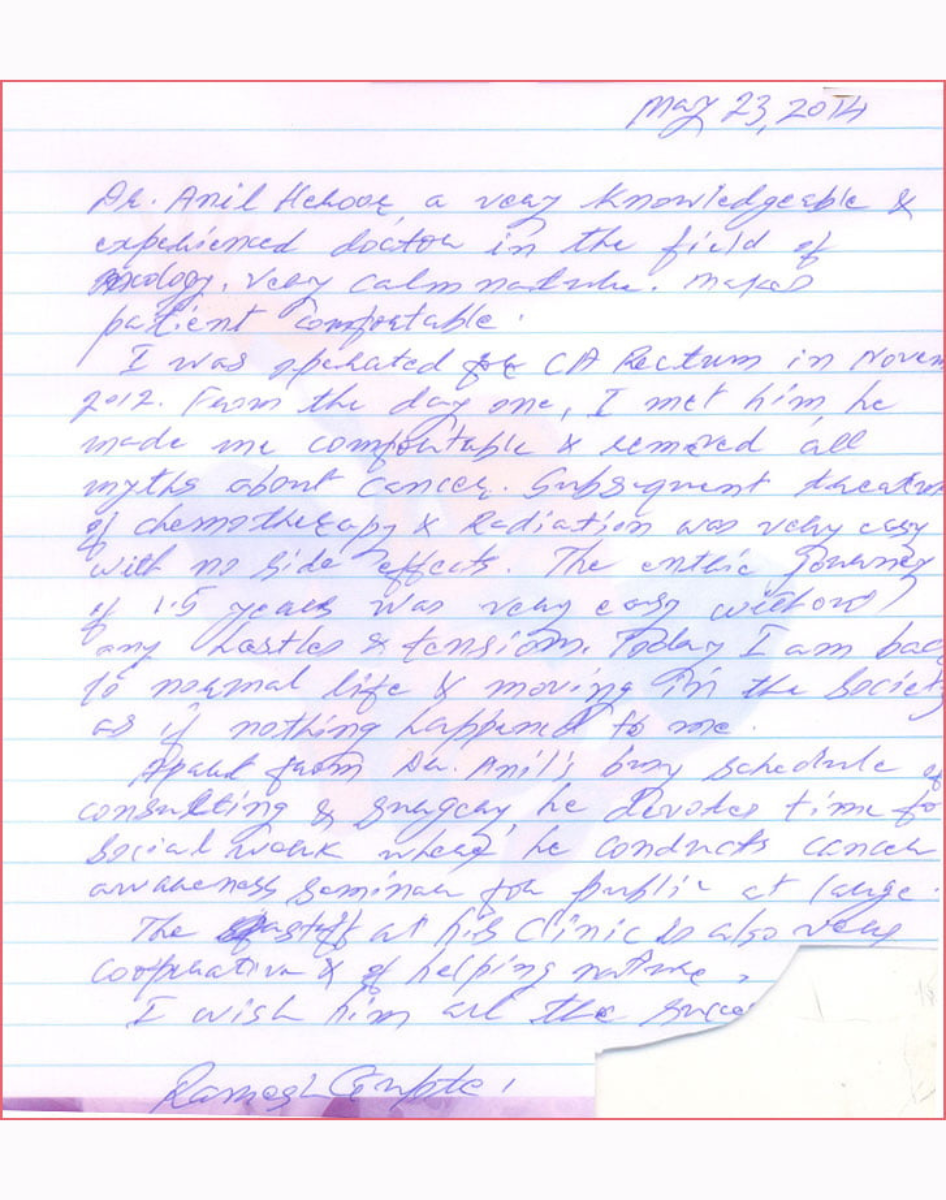 May 23, 2014
Dr. Anil Heroor a very knowledgeable &
experienced doctor in the field of
oncology. very calm nature. makes
patient comfortable.
I was operated for CA Rectum in Novem
2012. From the day one, I met him he
made me comfortable & removed all
myths about cancer. Subsequent treatm
of chemotherapy & Radiation was very easy
with no side effects. The entire Journey
of 1.5 years was very easy without
any hastles & tensions. Today I am bac
to normal life & moving in the Society
as if nothing happened to me.
Apart from Dr. Anil's busy schedule of
consulting & surgery, he devotes time fo
social work where he conducts cancer
awareness seminar for public at large.
The staff at his clinic is also very
cooperative & of helping nature.
I wish him all the succe
Ramesh Gupte